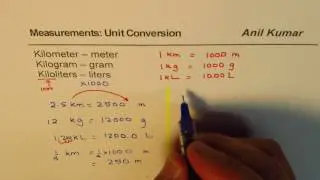 Measurements: Unit Conversion Anil Kumar
Kilometer – meter 1 km = 1000 m
Kilogram – gram 1 kg = 1000 g
Kiloliters – liters 1 kL = 1000 L
1000 x1000
2.5 km = 2500 m
12 kg = 12000 g
kL = 1200.0 L
1/4 km = 1/4 x 1000 m
= 250 m